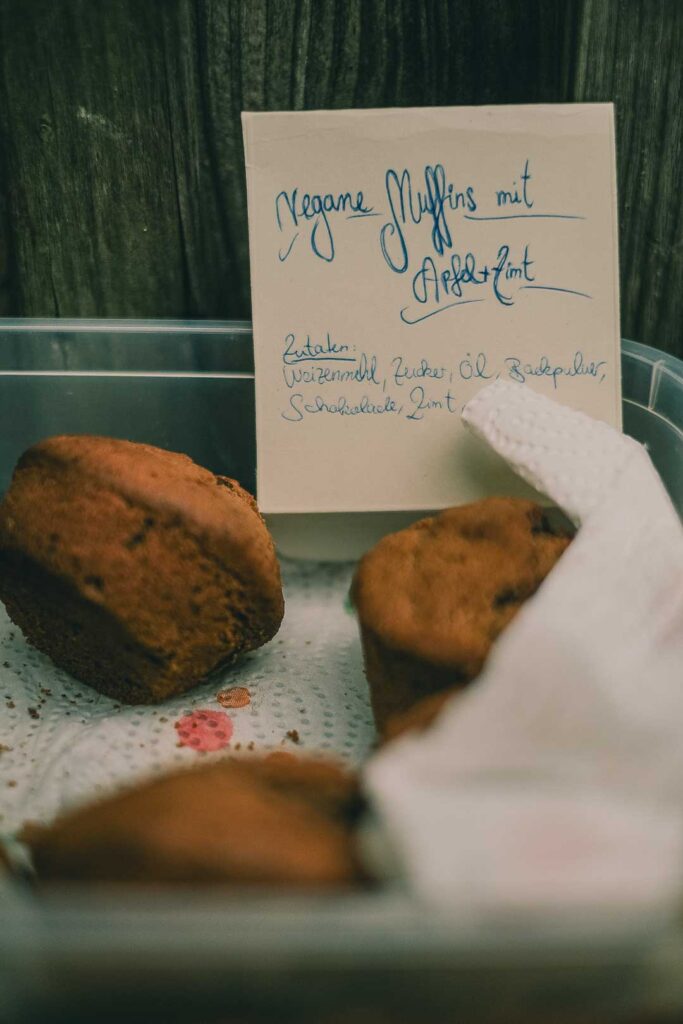 Vegane Muffins mit
Apfel+Zimt
Zutaten:
Weizenmehl, Zucker, Öl, Backpulver,
Schokolade, Zimt